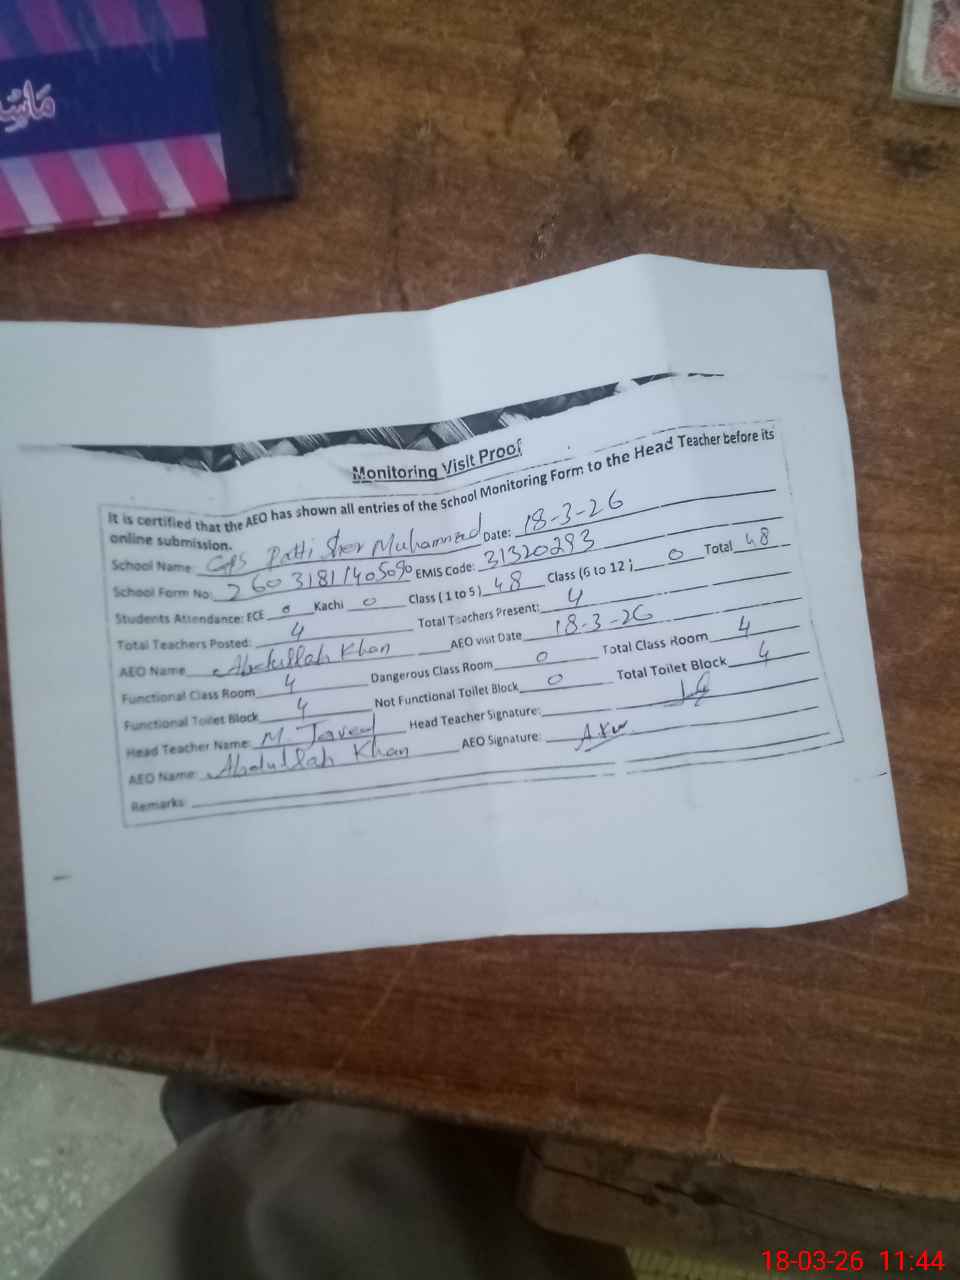 Monitoring Visit Proof
It is certified that the AEO has shown all entries of the School Monitoring Form to the Head Teacher before its
online submission.
School Name: GPS Patti Sher Muhammad Date: 18-3-26
School Form No: 2603181140509 EMIS Code: 31320293
Students Attendance: ECE 0 Kachi 0 Class (1 to 5) 48 Class (6 to 12) 0 Total 48
Total Teachers Posted: 4 Total Teachers Present: 4
AEO Name Abdullah Khan AEO visit Date 18-3-26
Functional Class Room 4 Dangerous Class Room 0 Total Class Room 4
Functional Toilet Block 4 Not Functional Toilet Block 0 Total Toilet Block 4
Head Teacher Name: M. Javed Head Teacher Signature:
AEO Name: Abdullah Khan AEO Signature:
Remarks:
18-03-26 11:44